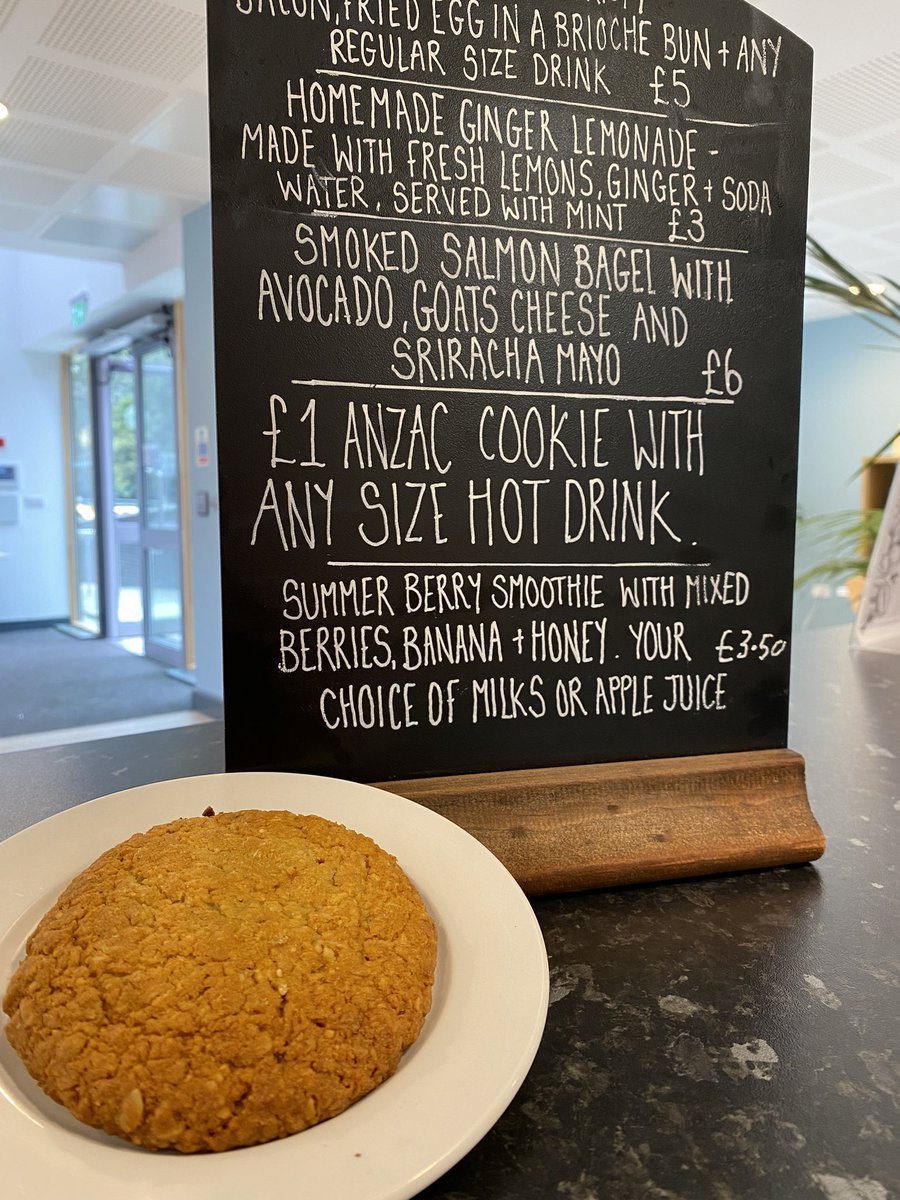 BACON, FRIED EGG IN A BRIOCHE BUN + ANY
REGULAR SIZE DRINK £5
HOMEMADE GINGER LEMONADE -
MADE WITH FRESH LEMONS, GINGER + SODA
WATER. SERVED WITH MINT £3
SMOKED SALMON BAGEL WITH
AVOCADO, GOATS CHEESE AND
SRIRACHA MAYO £6
£1 ANZAC COOKIE WITH
ANY SIZE HOT DRINK.
SUMMER BERRY SMOOTHIE WITH MIXED
BERRIES, BANANA + HONEY. YOUR £3.50
CHOICE OF MILKS OR APPLE JUICE